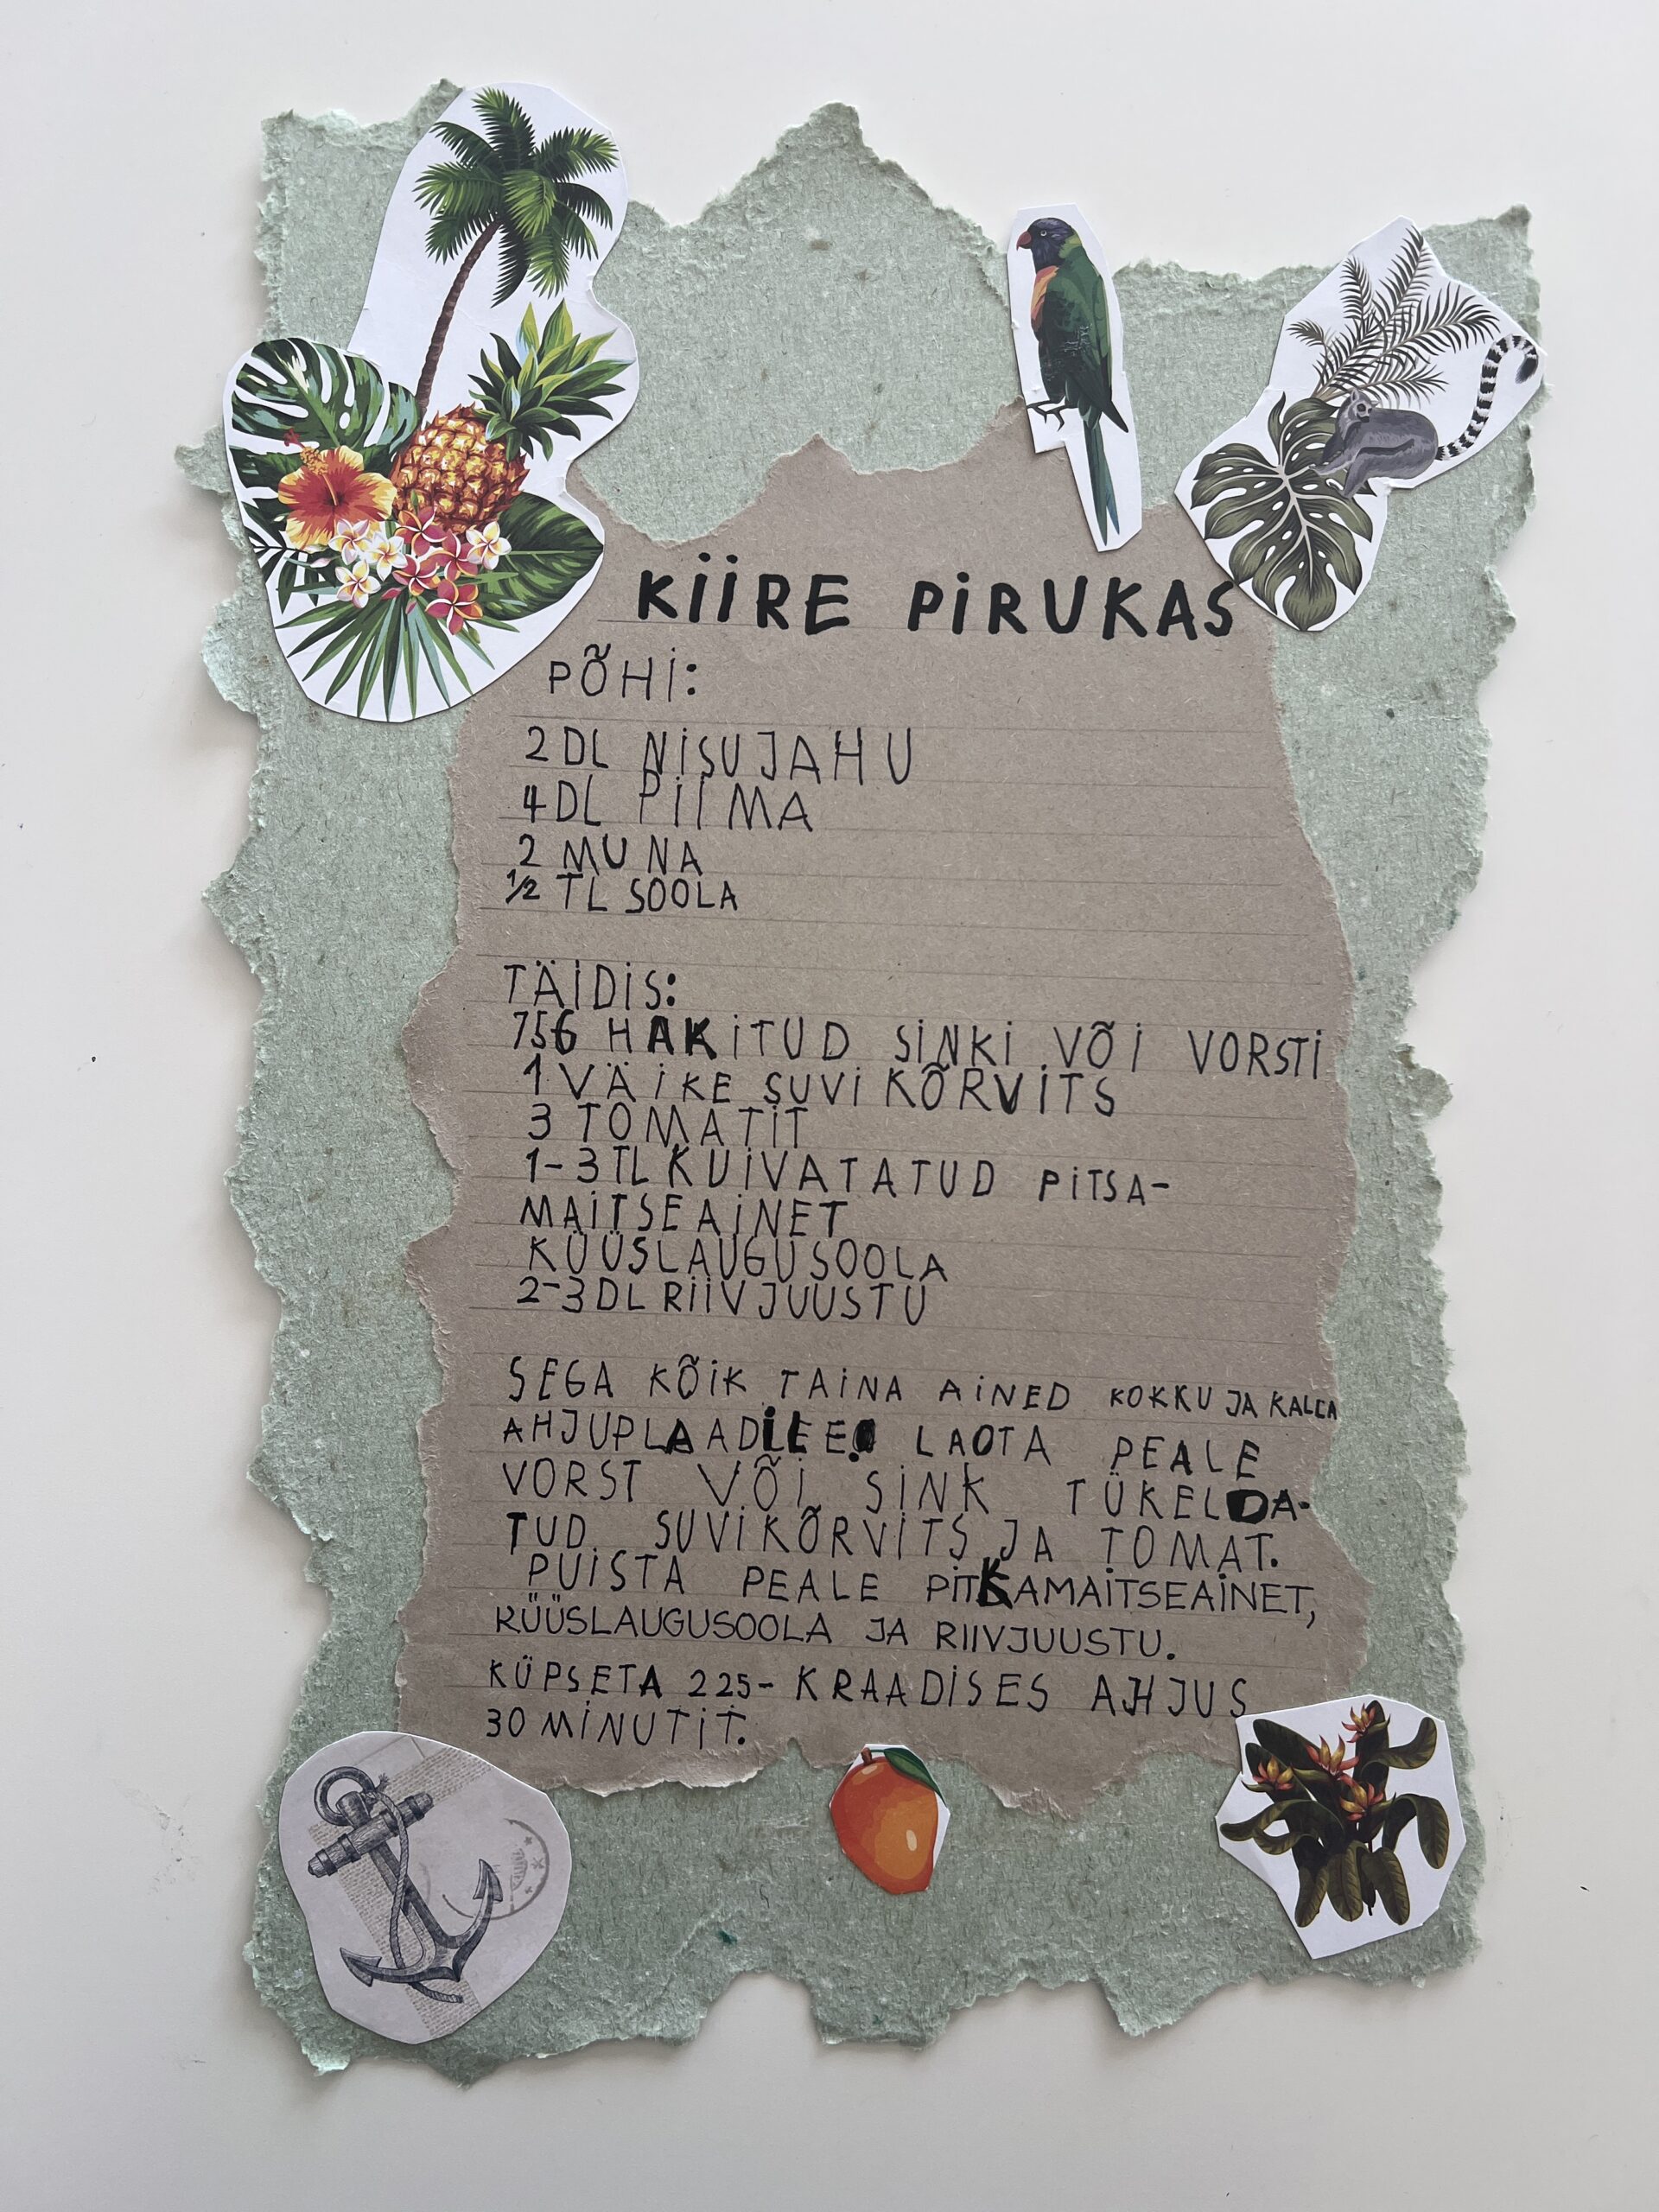 KIIRE PIRUKAS
PÕHI:
2 DL NISUJAHU
4 DL PIIMA
2 MUNA
1/2 TL SOOLA
TÄIDIS:
75G HAKITUD SINKI VÕI VORSTI
1 VÄIKE SUVIKÕRVITS
3 TOMATIT
1-3 TL KUIVATATUD PITSA-
MAITSEAINET
KÜÜSLAUGUSOOLA
2-3 DL RIIVJUUSTU
SEGA KÕIK TAINA AINED KOKKU JA KALLA
AHJUPLAADILE. LAOTA PEALE
VORST VÕI SINK TÜKELDA-
TUD SUVIKÕRVITS JA TOMAT.
PUISTA PEALE PITKAMAITSEAINET,
KÜÜSLAUGUSOOLA JA RIIVJUUSTU.
KÜPSETA 225-KRAADISES AHJUS
30 MINUTIT.